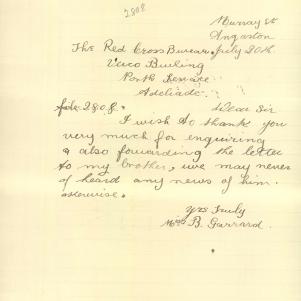 2808
Murray St
Angaston
The Red Cross Bureau July 20th
Verco Building
North Terrace
Adelaide.
file 2808. Dear Sir
I wish to thank you
very much for enquiring
& also forwarding the letter
to my brother, we may never
of heard any news of him.
otherwise.
Yrs Truly
Mrs B. Garrard.